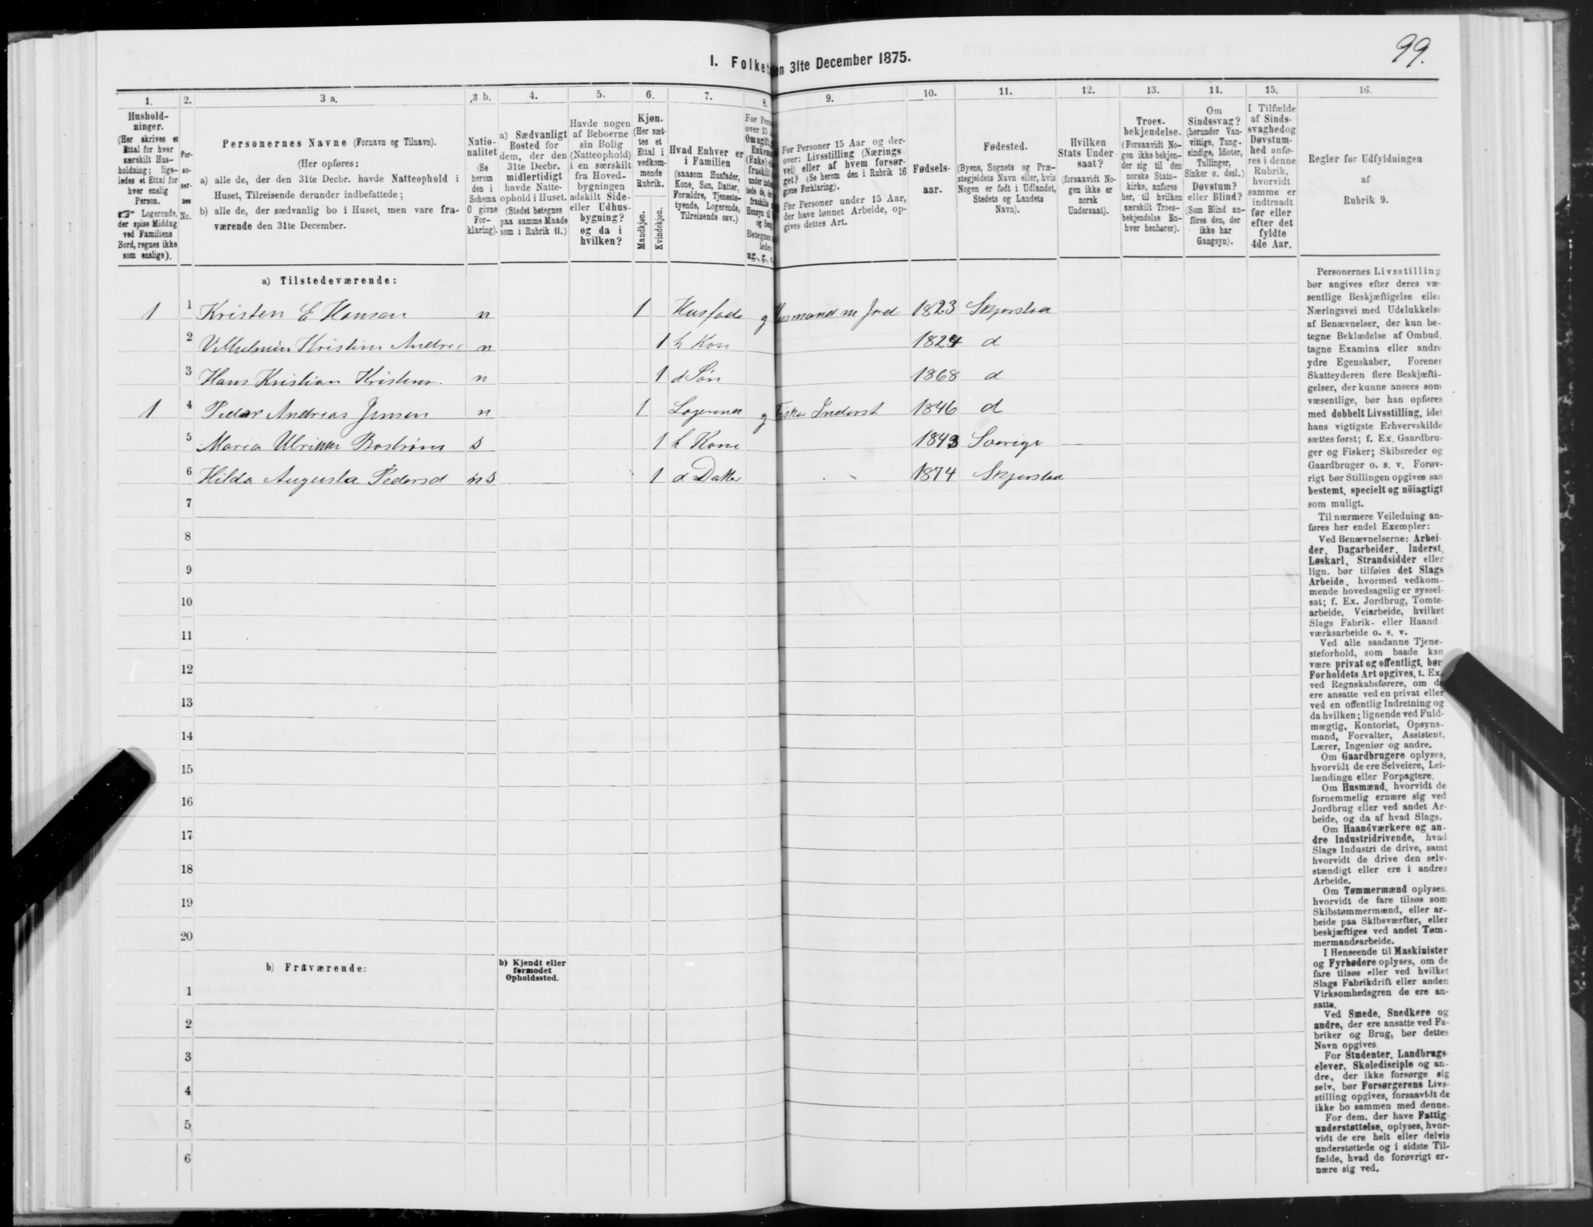 99.
I. Folke
n 31te December 1875.
1. 2. 3 a. 3 b. 4. 5. 6. 7. 8. 9. 10. 11. 12. 13. 14. 15. 16.
Hushold-
ninger.
(Her skrives et
Ettal for hver
særskilt Hus-
holdning; lige-
ledes et Ettal for
hver enslig
Person.
Logerende,
der spise Middag
ved Familiens
Bord, regnes ikke
som enslige).
Per-
so-
ner-
nes
No.
Personernes Navne (Fornavn og Tilnavn).
(Her opføres:
a) alle de, der den 31te Decbr. havde Natteophold i
Huset, Tilreisende derunder indbefattede;
b) alle de, der sædvanlig bo i Huset, men vare fra-
værende den 31te December.
Natio-
nalitet
(Se
herom
den i
Schema
O givne
For-
klaring).
a) Sædvanligt
Bosted for
dem, der den
31te Decbr.
midlertidigt
havde Natte-
ophold i Huset.
(Stedet betegnes
paa samme Maade
som i Rubrik 11.)
Havde nogen
af Beboerne
sin Bolig
(Natteophold)
i en særskilt
fra Hoved-
bygningen
adskilt Side-
eller Udhus-
bygning?
og da i
hvilken?
Kjøn.
(Her sæt-
tes et
Ettal i
vedkom-
mende
Rubrik.
Mandkjøn.
Kvindekjøn.
Hvad Enhver er
i Familien
(saasom Husfader,
Kone, Søn, Datter,
Forældre, Tjeneste-
tyende, Logerende,
Tilreisende osv.)
For Personer 15 Aar og der-
over: Livsstilling (Nærings-
vei) eller af hvem forsør-
get? (Se herom den i Rubrik 16
givne Forklaring).
For Personer under 15 Aar,
der have lønnet Arbeide, op-
gives dettes Art.
Fødsels-
aar.
Fødested.
(Byens, Sognets og Præ-
stegjeldets Navn eller, hvis
Nogen er født i Udlandet,
Stedets og Landets
Navn).
Hvilken
Stats Under-
saat?
(forsaavidt No-
gen ikke er
norsk
Undersaat).
Troes-
bekjendelse.
(Forsaavidt No-
gen ikke bekjen-
der sig til den
norske Stats-
kirke, anføres
her, til hvilken
særskilt Troes-
bekjendelse En-
hver henhører).
Om
Sindssvag?
(herunder Van-
vittige, Tung-
sindige, Idioter,
Tullinger,
Sinker o. desl.)
Døvstum?
eller Blind?
(Som Blind an-
føres den, der
ikke har
Gangsyn).
I Tilfælde
af Sinds-
svaghed og
Døvstum-
hed anfø-
res i denne
Rubrik,
hvorvidt
samme er
indtraadt
før eller
efter det
fyldte
4de Aar.
Regler for Udfyldningen
af
Rubrik 9.
a) Tilstedeværende:
1 1 Kristen E Hansen n 1 Husfade g Husmand m Jord 1823 Skjerstad
2 Kristine n 1 h Kon 1824 d
3 Hans Kristian Kristens. n 1 d Søn 1868 d
1 4 Peder Andreas Jensen n 1 Logerende g Inderst 1846 d
5 Maria Ulrikke Bostrøm s 1 h Kone 1843 Sverige
6 Hilda Augusta Pedersd n s 1 d Datte 1874 Skjerstad
7
8
9
10
11
12
13
14
15
16
17
18
19
20
b) Fraværende:
b) Kjendt eller
formodet
Opholdssted.
1
2
3
4
5
6
Personernes Livsstilling
bør angives efter deres væ-
sentlige Beskjæftigelse eller
Næringsvei med Udelukkelse
af Benævnelser, der kun be-
tegne Beklædelse af Ombud,
tagne Examina eller andre
ydre Egenskaber. Forener
Skatteyderen flere Beskjæfti-
gelser, der kunne ansees som
væsentlige, bør han opføres
med dobbelt Livsstilling, idet
hans vigtigste Erhvervskilde
sættes først; f. Ex. Gaardbru-
ger og Fisker; Skibsreder og
Gaardbruger o. s. v. Forøv-
rigt bør Stillingen opgives saa
bestemt, specielt og nöiagtigt
som muligt.
Til nærmere Veiledning an-
føres her endel Exempler:
Ved Benævnelserne: Arbei-
der, Dagarbeider, Inderst,
Løskarl, Strandsidder eller
lign. bør tilføies det Slags
Arbeide, hvormed vedkom-
mende hovedsagelig er syssel-
sat; f. Ex. Jordbrug, Tomte-
arbeide, Veiarbeide, hvilket
Slags Fabrik- eller Haand-
værksarbeide o. s. v.
Ved alle saadanne Tjene-
steforhold, som baade kan
være privat og offentligt, bør
Forholdets Art opgives, t. Ex.
ved Regnskabsførere, om de
ere ansatte ved en privat eller
ved en offentlig Indretning og
da hvilken; lignende ved Fuld-
mægtig, Kontorist, Opsyns-
mand, Forvalter, Assistent,
Lærer, Ingeniør og andre.
Om Gaardbrugere oplyses,
hvorvidt de ere Selveiere, Lei-
lændinge eller Forpagtere.
Om Husmænd, hvorvidt de
fornemmelig ernære sig ved
Jordbrug eller ved andet Ar-
beide, og da af hvad Slags.
Om Haandværkere og an-
dre Industridrivende, hvad
Slags Industri de drive, samt
hvorvidt de drive den selv-
stændigt eller ere i andres
Arbeide.
Om Tømmermænd oplyses,
hvorvidt de fare tilsøs som
Skibstømmermænd, eller ar-
beide paa Skibsværfter, eller
beskjæftiges ved andet Tøm-
mermandsarbeide.
I Henseende til Maskinister
og Fyrbødere oplyses, om de
fare tilsøs eller ved hvilket
Slags Fabrikdrift eller anden
Virksomhedsgren de ere an-
satte.
Ved Smede, Snedkere og
andre, der ere ansatte ved Fa-
briker og Brug, bør dettes
Navn opgives.
For Studenter, Landbrugs-
elever, Skoledisciple og an-
dre, der ikke forsørge sig
selv, bør Forsørgerens Livs-
stilling opgives, forsaavidt de
ikke bo sammen med denne.
For dem, der have Fattig-
understøttelse, oplyses, hvor-
vidt de ere helt eller delvis
understøttede og i sidste Til-
fælde, hvad de forøvrigt er-
nære sig ved.